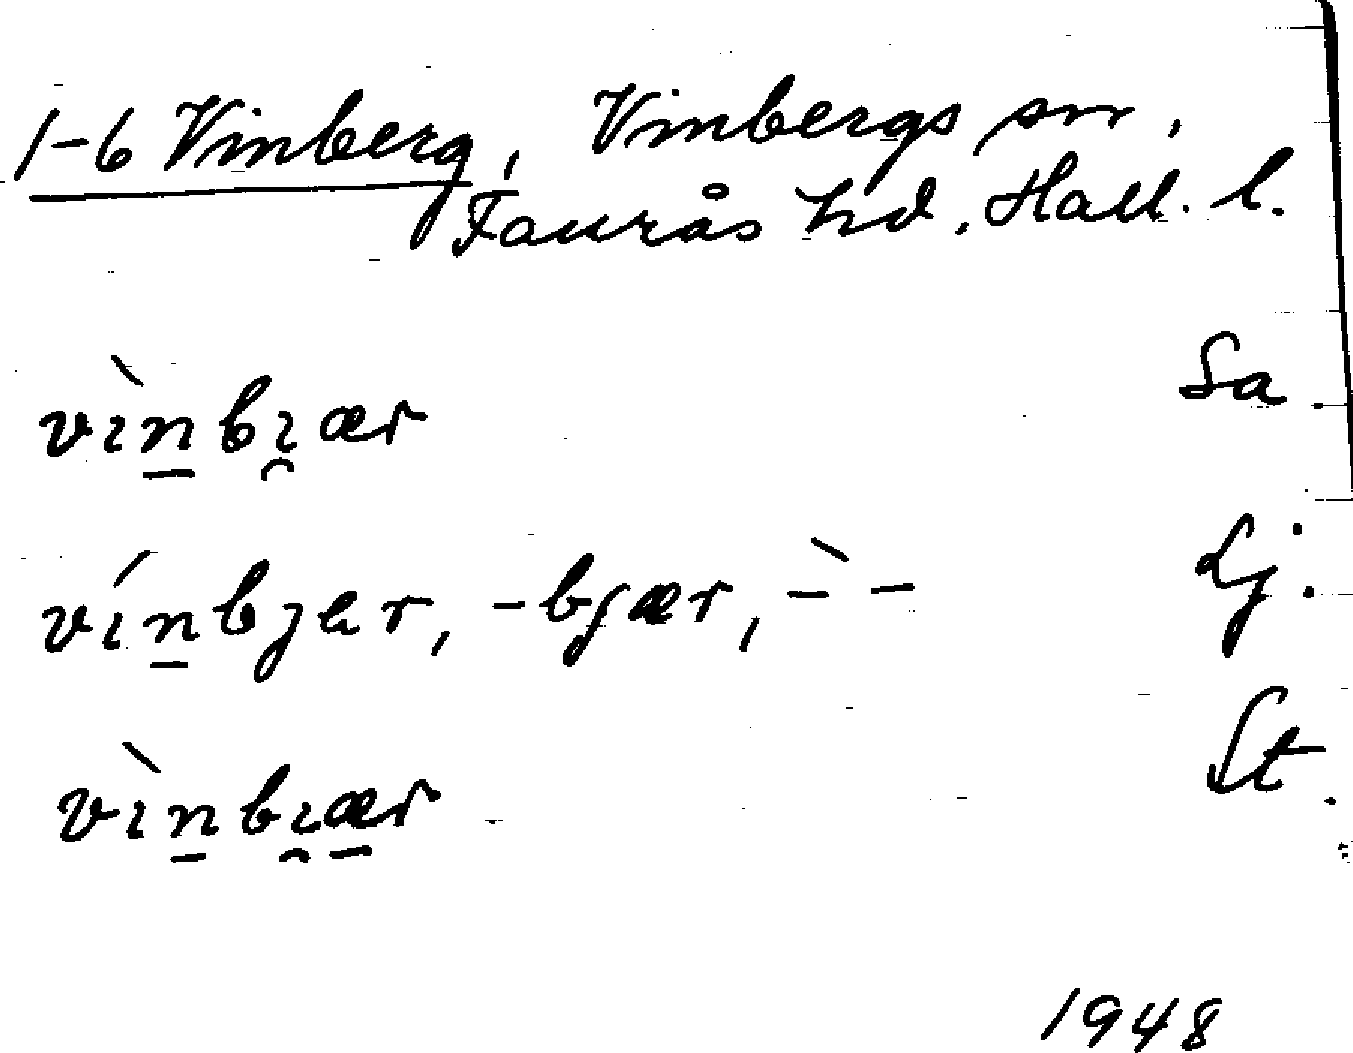 1-6 Vinberg, Vinbergs sn,
Faurås hd, Hall. l.
vı̀n̲bı̯ær Sa.
vı́n̲bjær, -bjær, -̀ - Lj.
vı̀n̲bı̯æ̲r St.
1948